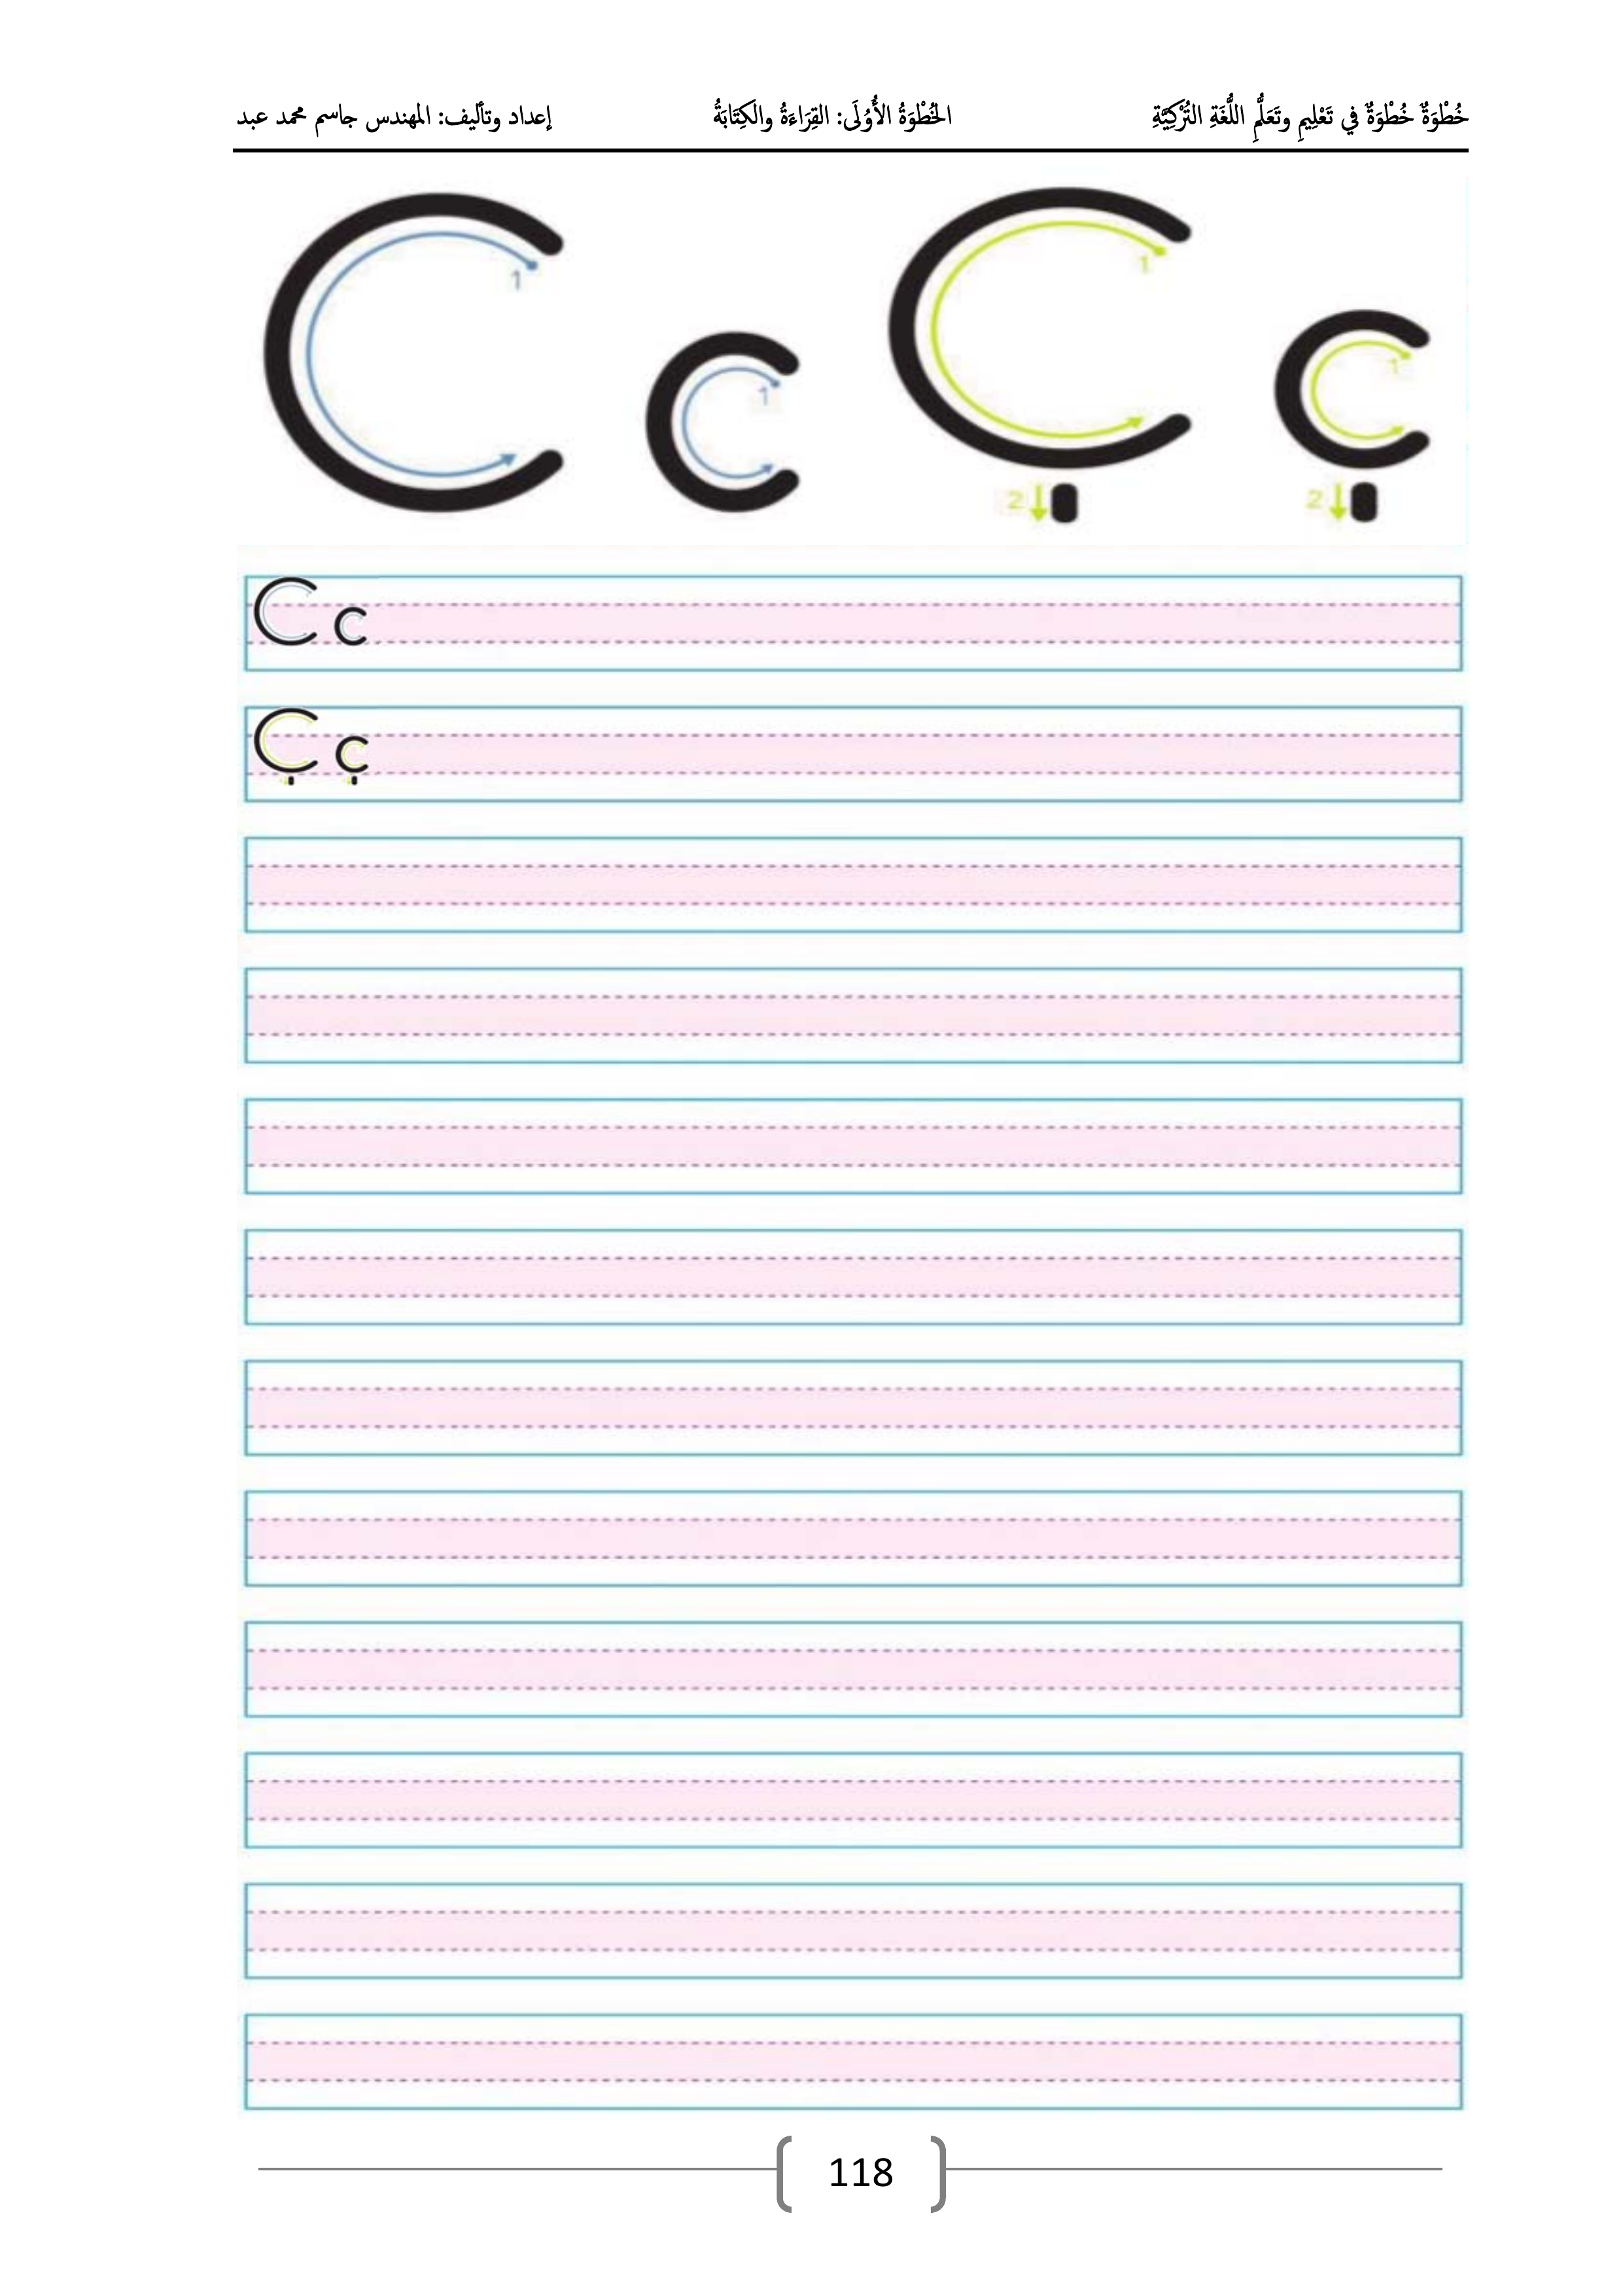 خُطْوَةٌ خُطْوَةٌ في تَعْلِيمِ وتَعَلُّمِ اللُّغَةِ التُرْكِيَّةِ الخُطْوَةُ الأُوْلَى: القِرَاءَةُ والكِتَابَةُ إعداد وتأليف: المهندس جاسم محمد عبد
C c Ç ç
1 1 1 1
2 2
C c
Ç ç
118